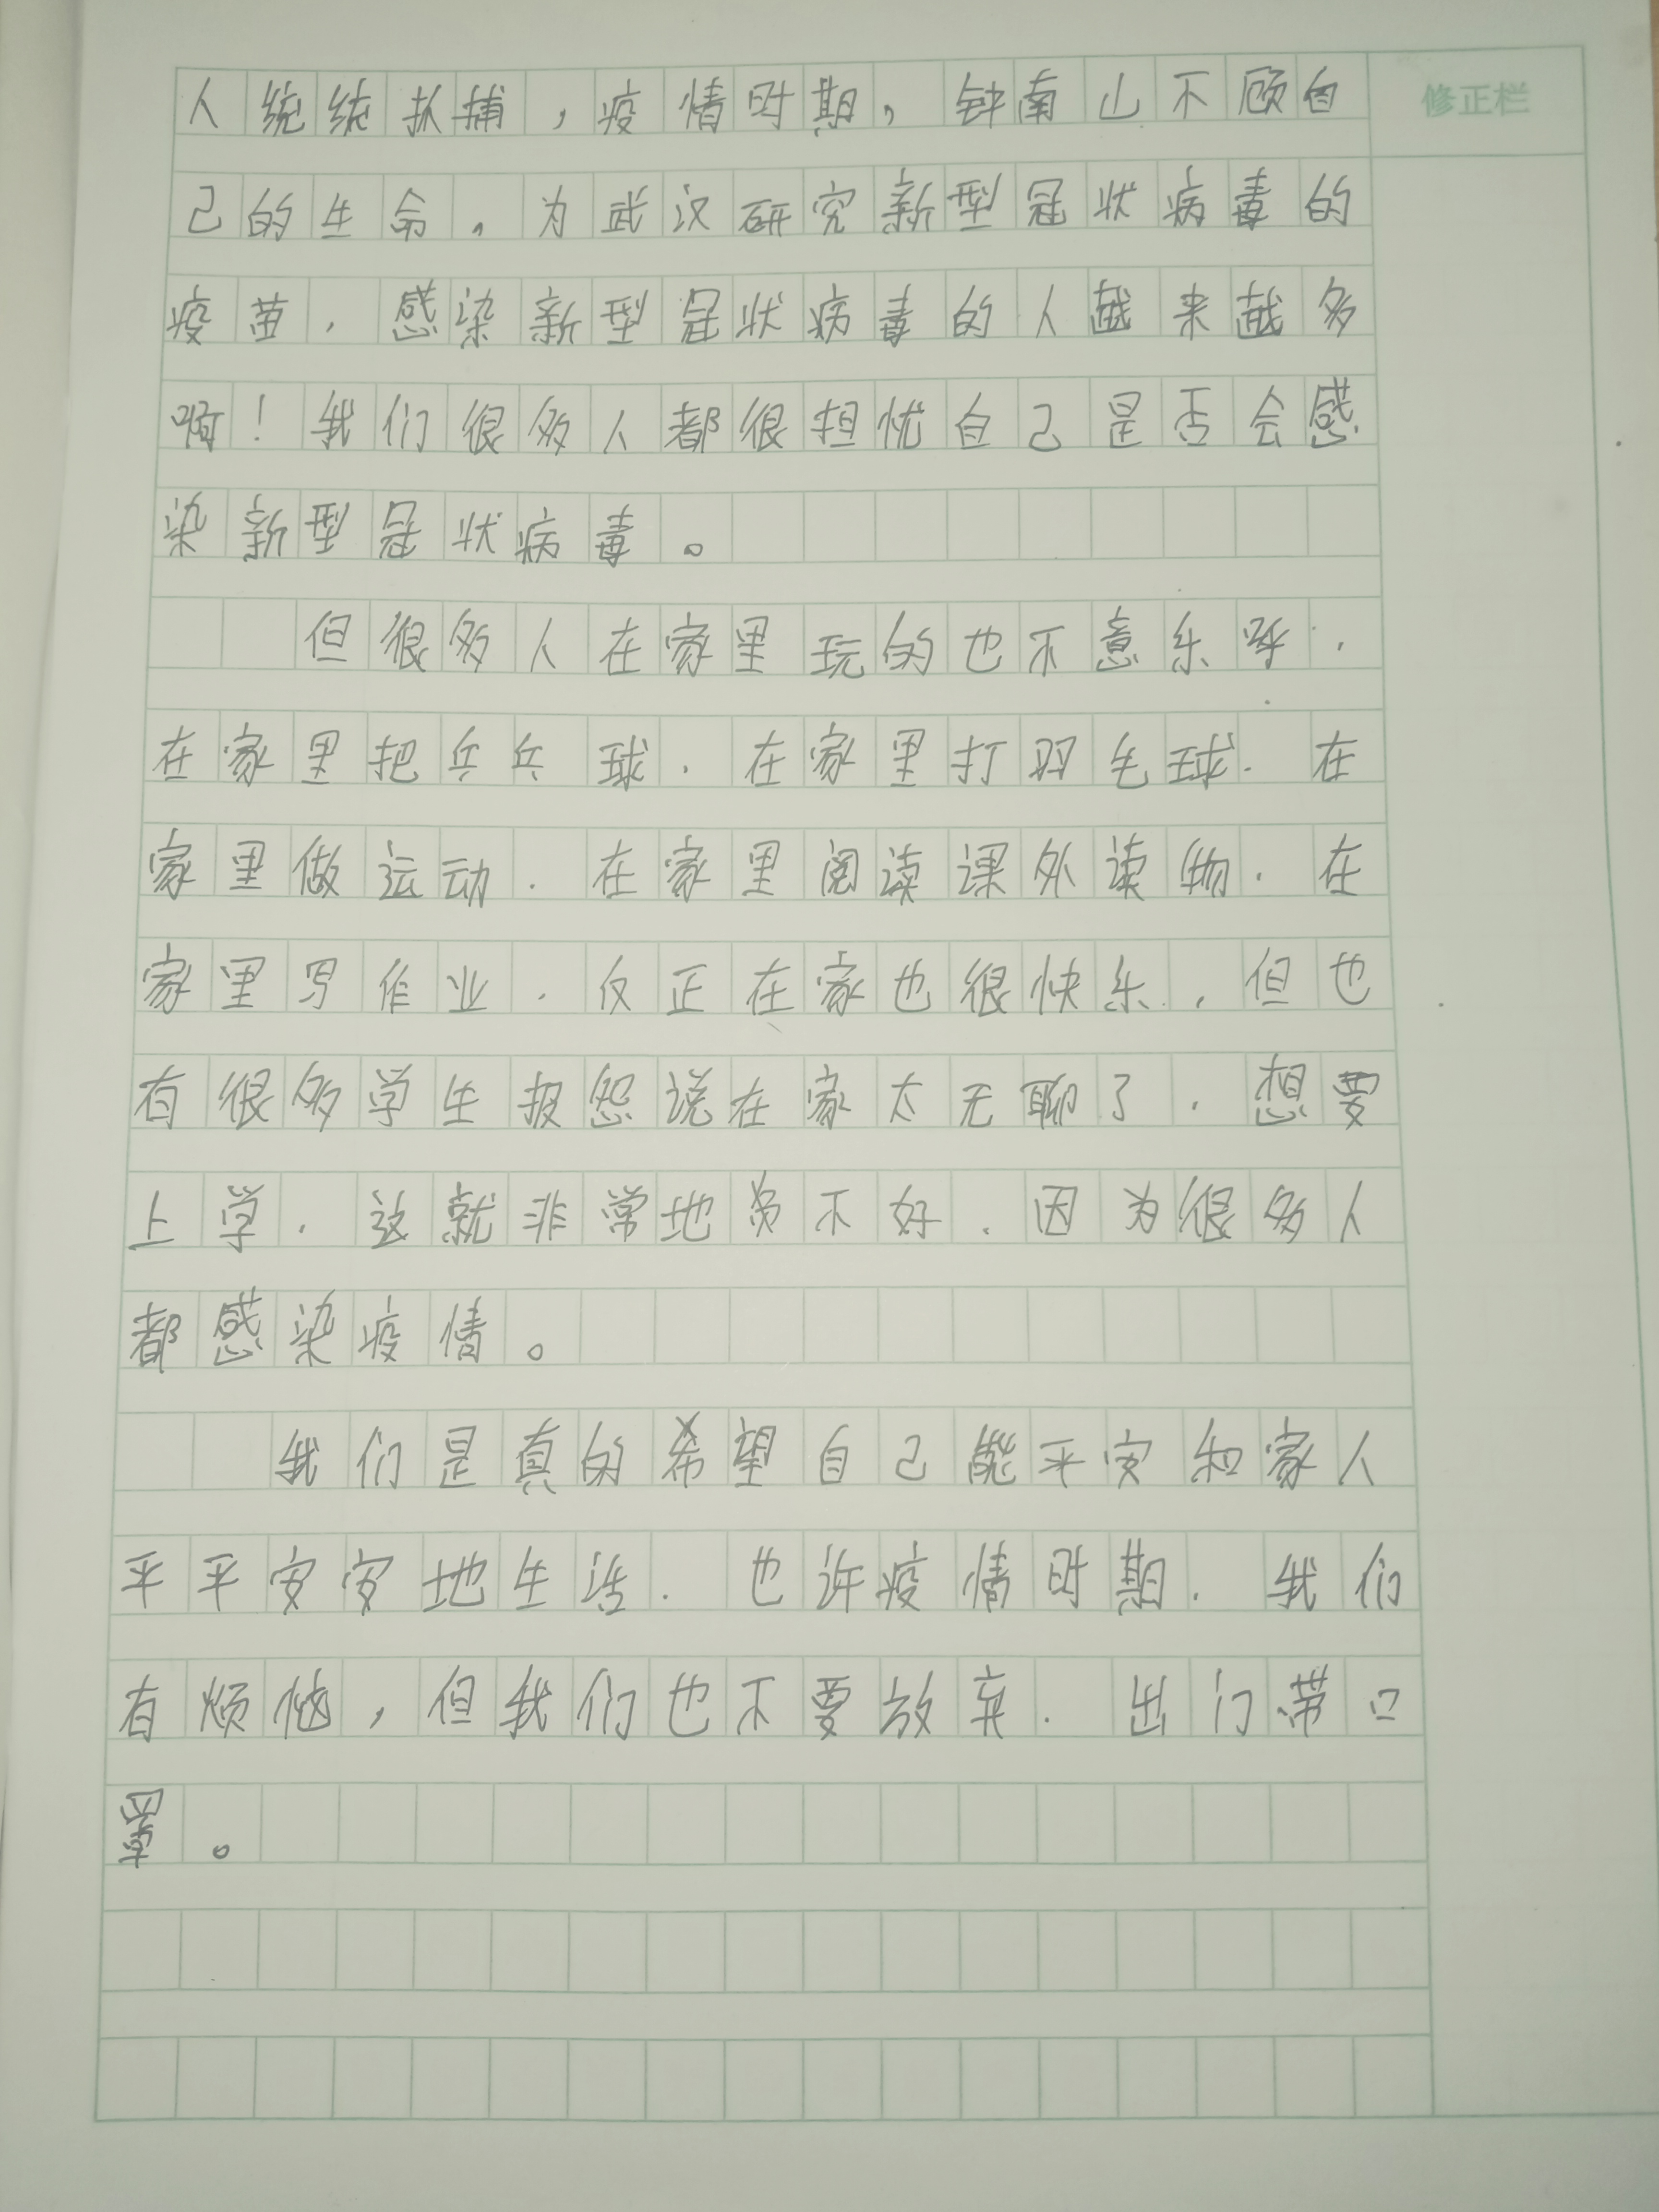 人统统抓捕，疫情时期，钟南山不顾自
修正栏
己的生命，为武汉研究新型冠状病毒的
疫苗，感染新型冠状病毒的人越来越多
啊！我们很多人都很担忧自己是否会感
染新型冠状病毒。
但很多人在家里玩的也不意乐呼，
在家里把乒乓球，在家里打羽毛球，在
家里做运动，在家里阅读课外读物，在
家里写作业，反正在家也很快乐，但也
有很多学生报怨说在家太无聊了，想要
上学，这就非常地不好，因为很多人
都感染疫情。
我们是真的希望自己能平安和家人
平平安安地生活，也许疫情时期，我们
有烦恼，但我们也不要放弃，出门带口
罩。